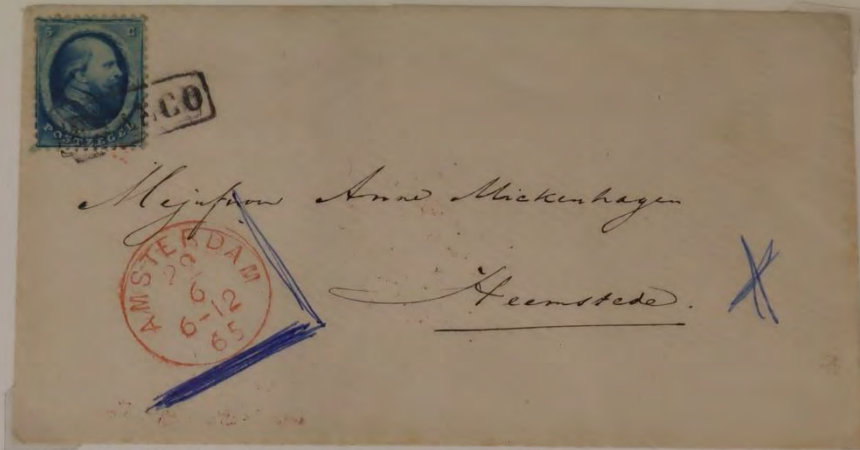 5 C
POSTZEGEL
Mejufvrou Anna Mickenhagen
Heemstede.
AMSTERDAM
29
6
6-12
65